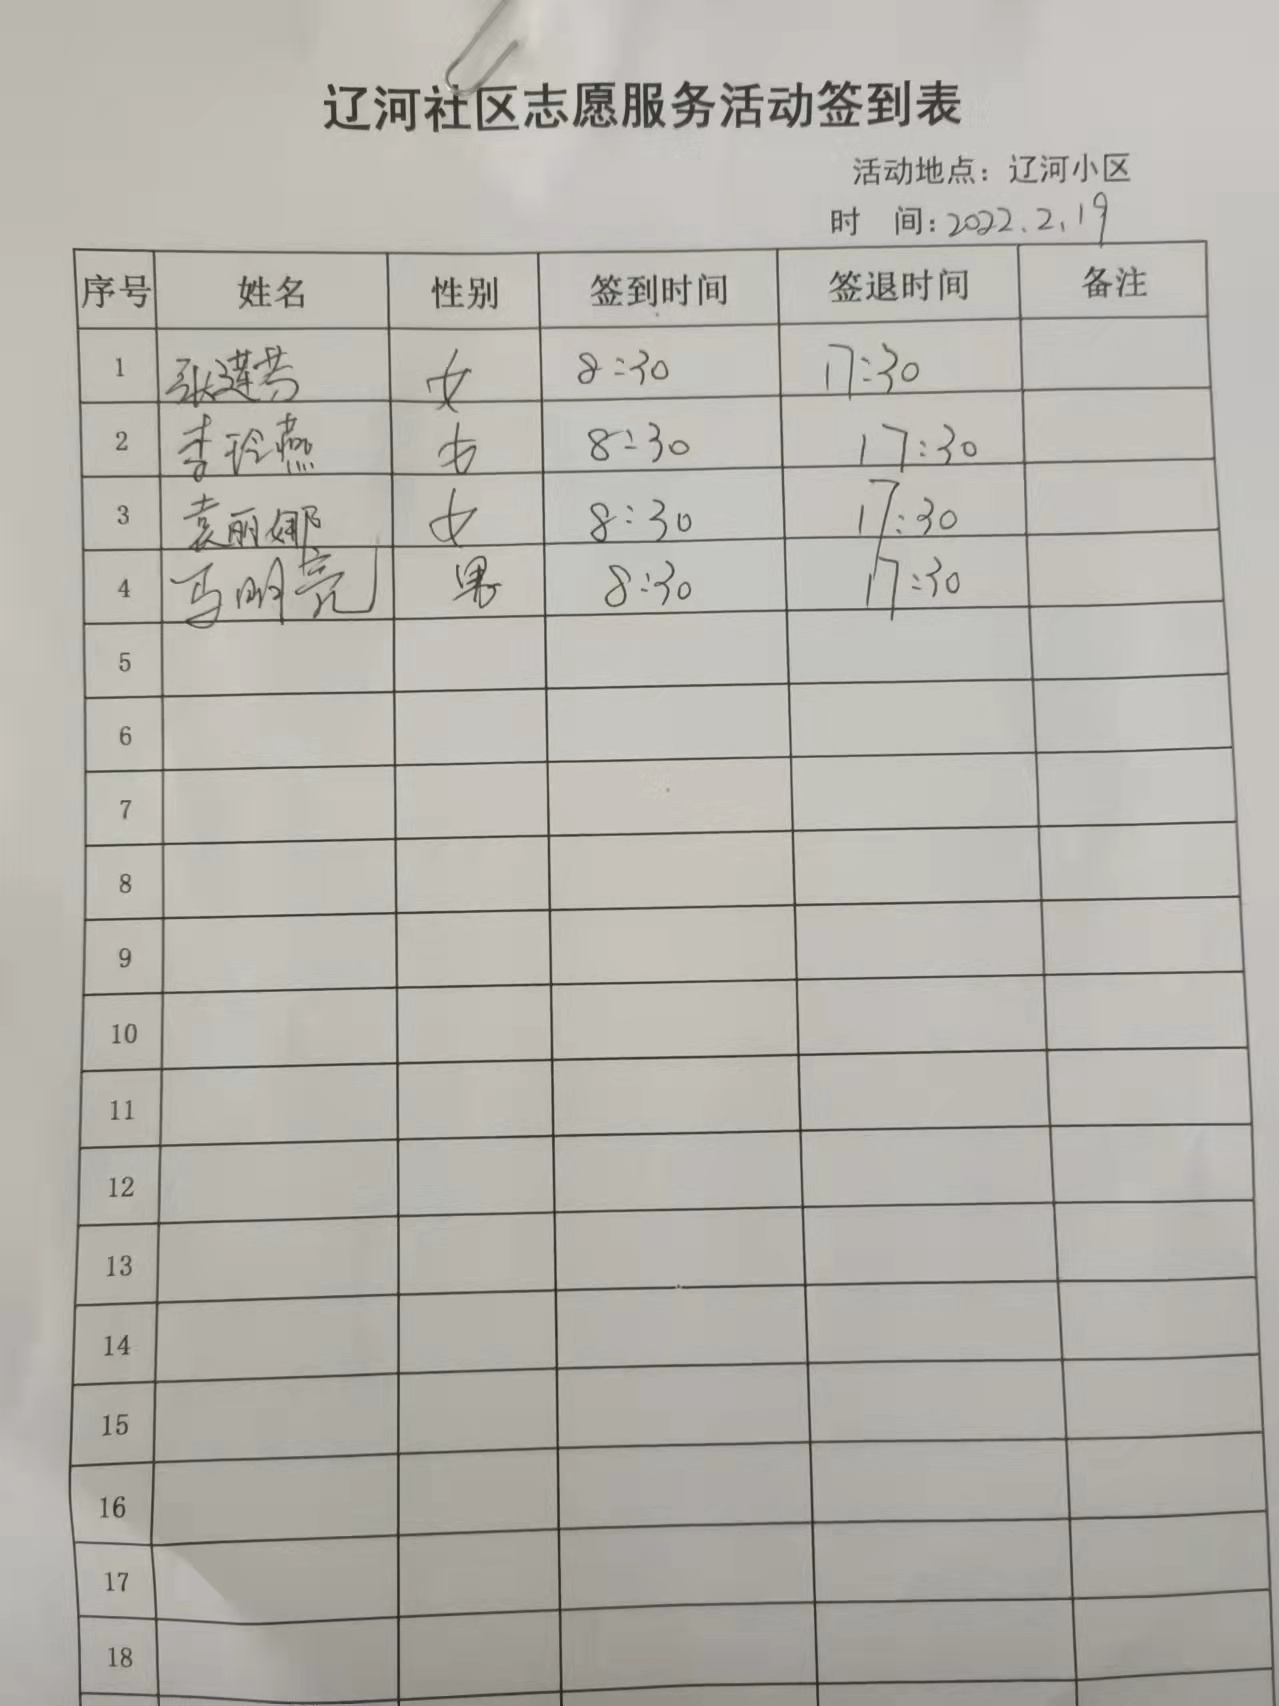 辽河社区志愿服务活动签到表
活动地点：辽河小区
时 间：2022.2.19
序号 姓名 性别 签到时间 签退时间 备注
1 张莲芳 女 8:30 17:30
2 李玲燕 女 8:30 17:30
3 袁丽娜 女 8:30 17:30
4 马明亮 男 8:30 17:30
5
6
7
8
9
10
11
12
13
14
15
16
17
18